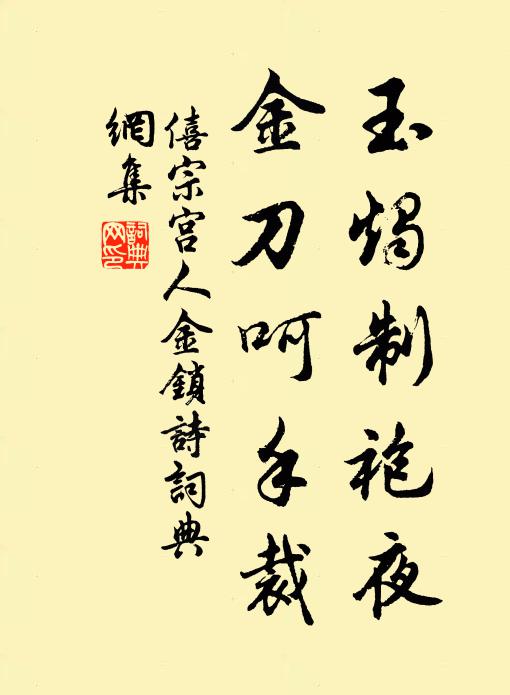 玉燭制袍夜
金刀呵手裁
僖宗宮人金鎖詩詞典
網集
詞典
网印